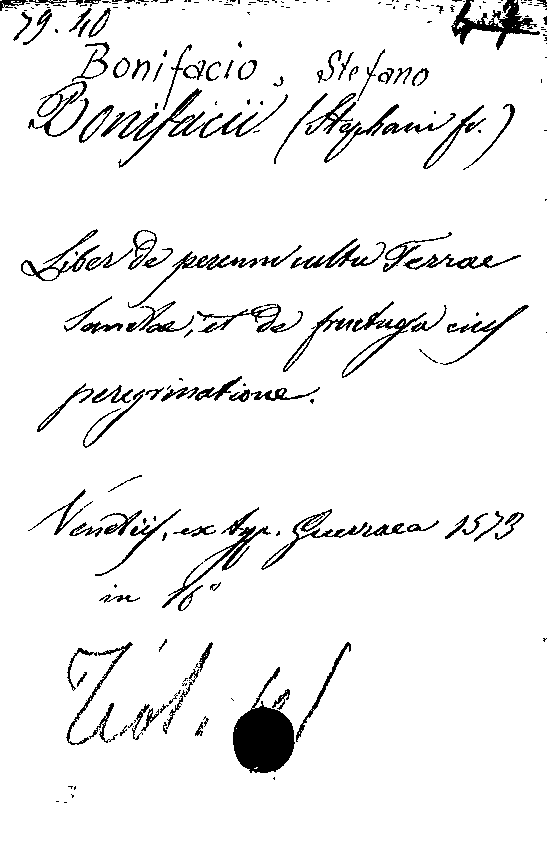 79.40
Bonifacio, Stefano
Bonifacii (Stephani fr.)
Liber de perenni cultu Terrae
Sanctae, et de fructuosa eius
peregrinatione.
Venetiis, ex typ. Guerraea 1573
in 16°